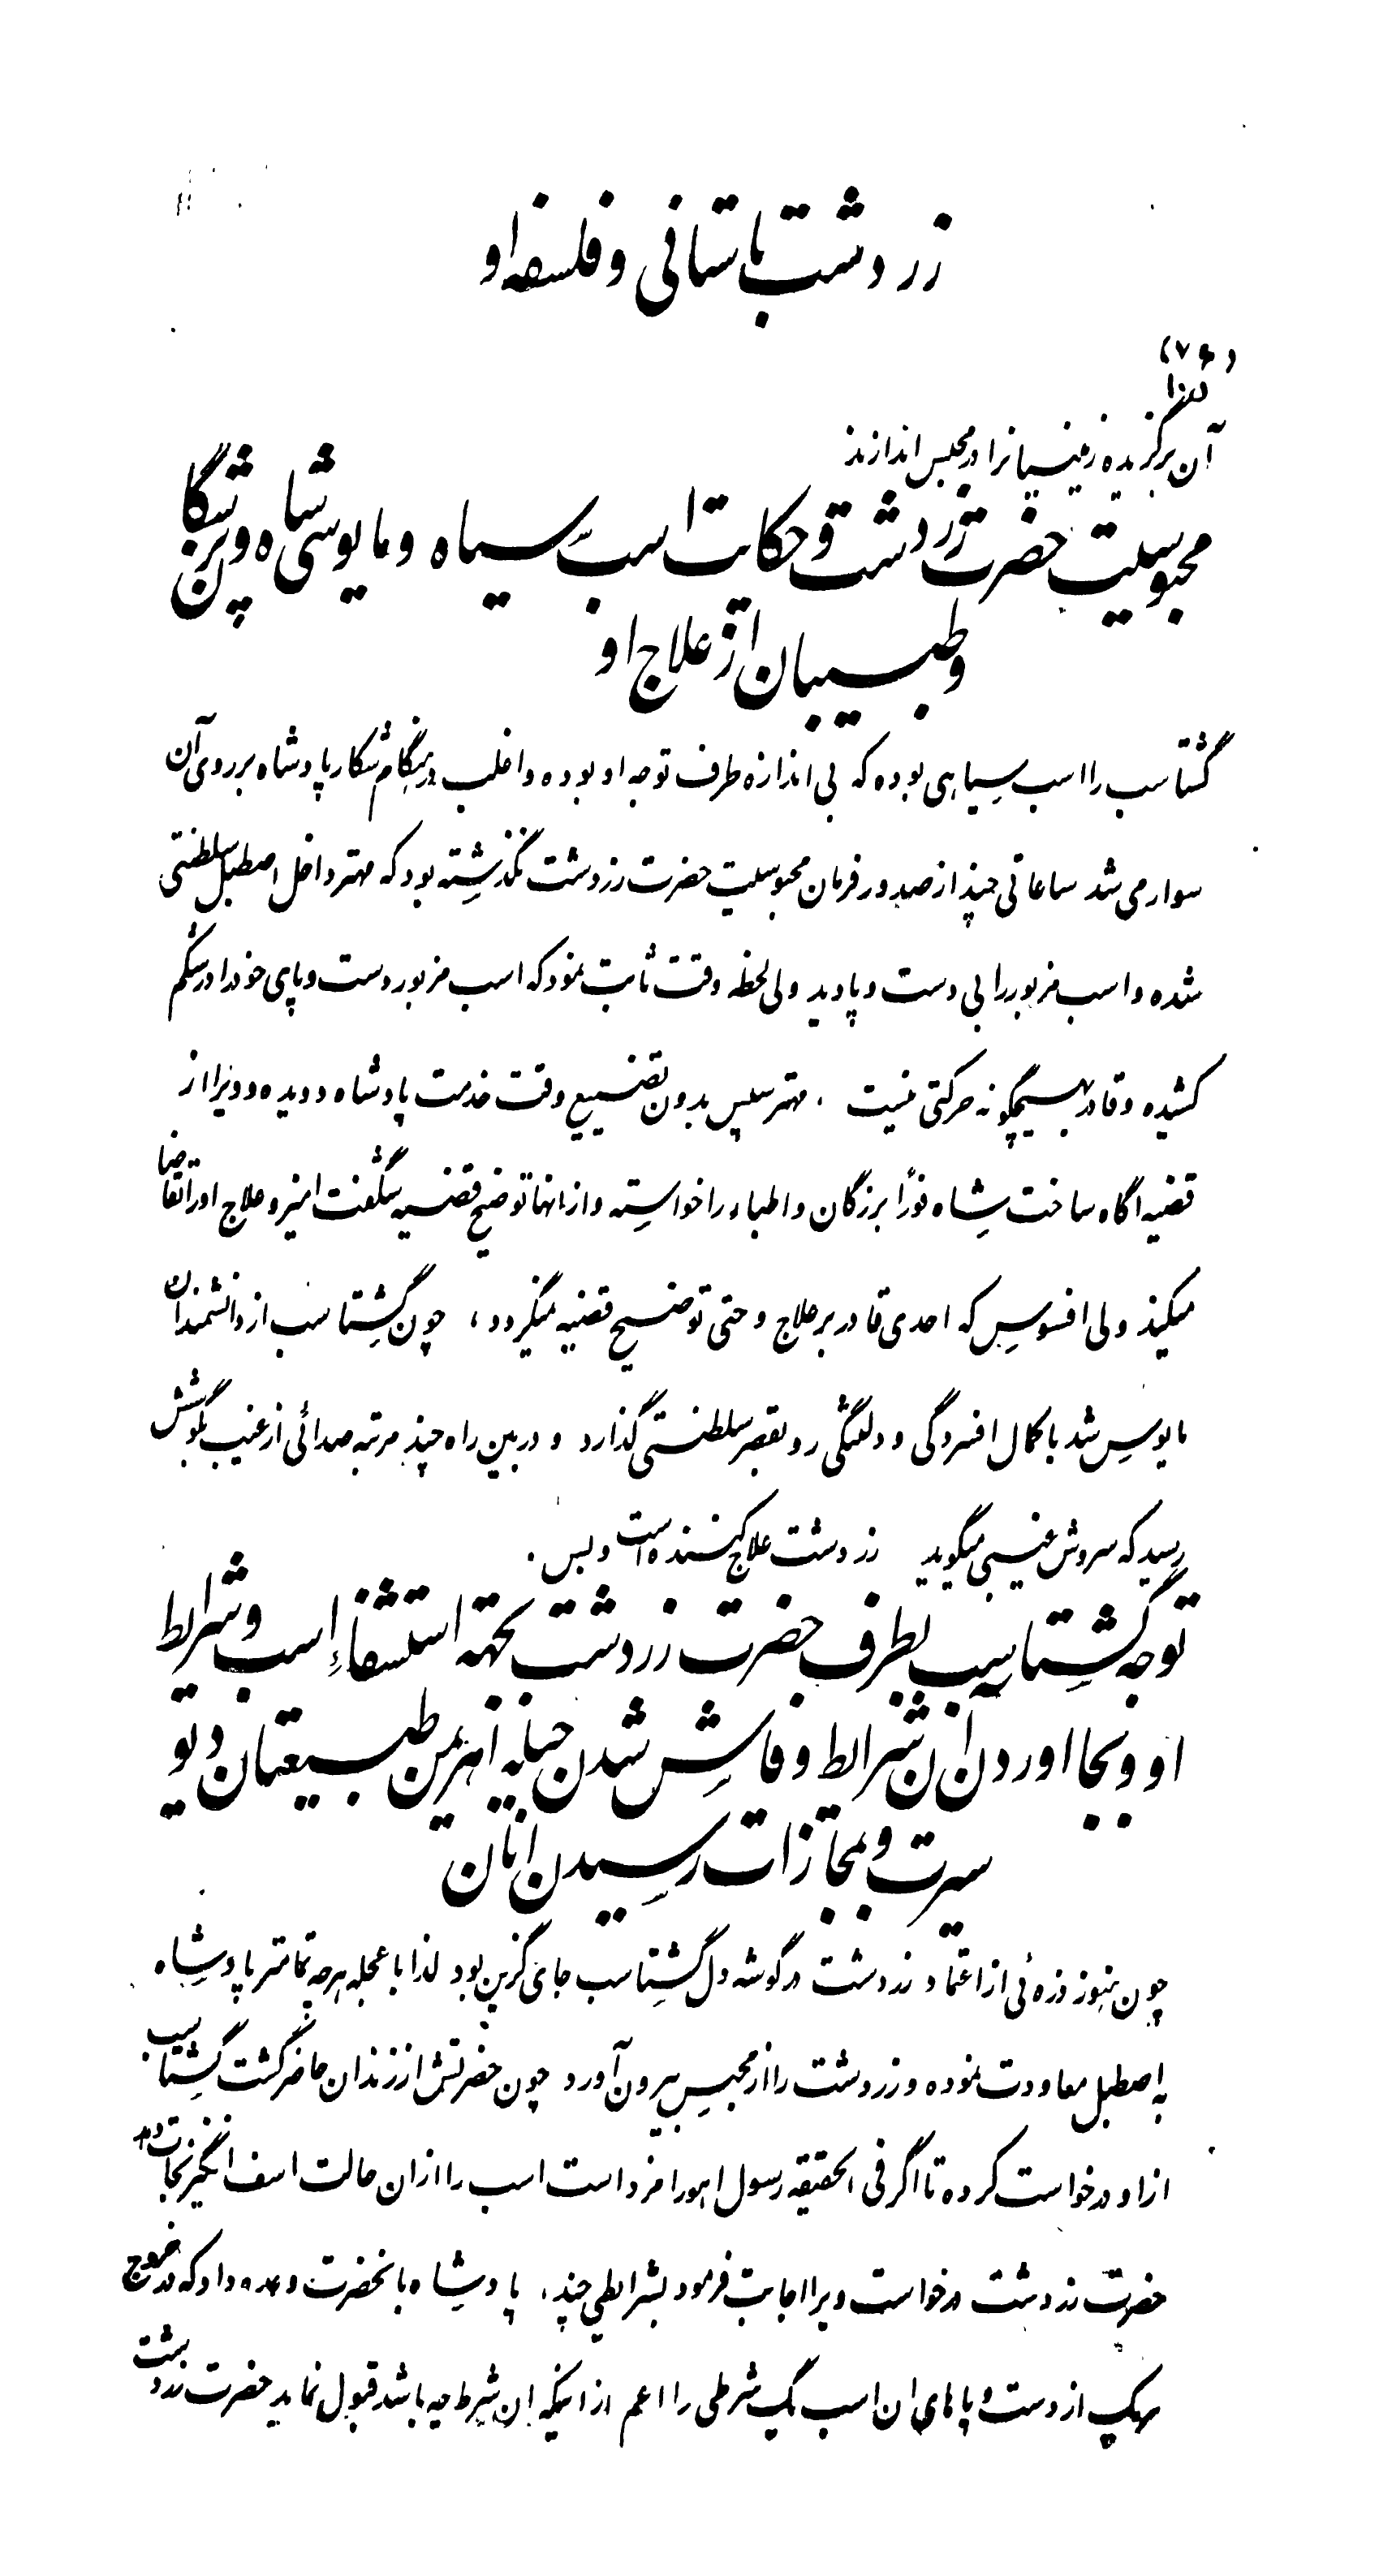 زردشت باستانی و فلسفه او
(۷۶)
آن برگزیده زمینیانرا در مجلس اندازند
محبوسیت حضرت زردشت و حکایت اسب سیاه و مایوسی شاه و پزشگان
و طبیبان از علاج او
گشتاسب را اسب سیاهی بوده که بی اندازه طرف توجه او بوده و اغلب در هنگام شکار پادشاه بر روی آن
سوار می شد ساعاتی چند از صدور فرمان محبوسیت حضرت زردشت نگذشته بود که مهتر داخل اصطبل سلطنتی
شده و اسب مزبور را بی دست و پا دید ولی لحظه دقت ثابت نمود که اسب مزبور دست و پای خود را در شکم
کشیده و قادر بهیچگونه حرکتی نیست . مهتر سپس بدون تضییع وقت خدمت پادشاه دویده و ویرا از
قضیه اگاه ساخت شاه فوراً بزرگان و اطباء را خواسته و از انها توضیح قضیه شگفت امیز و علاج او را تقاضا
میکند ولی افسوس که احدی قادر بر علاج و حتی توضیح قضیه نمیگردد ، چون گشتاسب از دانشمندان
مایوس شد با کمال افسردگی و دلتنگی رو بقصر سلطنتی گذارد و در بین راه چند مرتبه صدائی از غیب بگوشش
رسید که سروش غیبی میگوید زردشت علاج کننده است و بس .
توجه گشتاسب بطرف حضرت زردشت بجهته استشفاء اسب و شرایط
او و بجا اوردن آن شرایط و فاش شدن حیله اهریمن طبیعتان دیو
سیرت و بمجازات رسیدن انان
چون هنوز ذره ئی از اعتماد زردشت در گوشه دل گشتاسب جای گزین بود لذا با عجله هر چه تمامتر پادشاه
به اصطبل معاودت نموده و زردشت را از محبس بیرون آورد چون حضرتش از زندان حاضر گشت گشتاسب
از او درخواست کرده تا اگر فی الحقیقه رسول اهورامزدا است اسب را از ان حالت اسف انگیز نجات دهد
حضرت زردشت درخواست ویرا اجابت فرمود بشرایطی چند . پادشاه بانحضرت وعده داد که در خروج
هریک از دست و پاهای ان اسب یک شرطی را اعم از اینکه ان شرط چه باشد قبول نماید حضرت زردشت